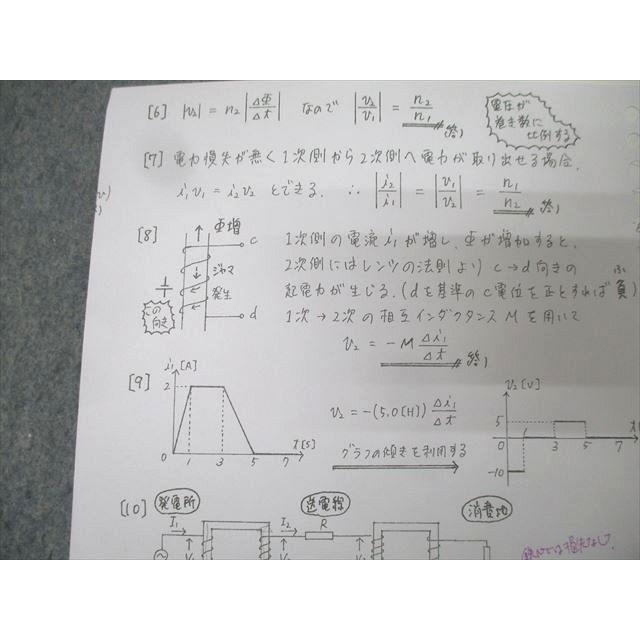 [6] |v₂| = n₂|ΔΦ/Δt| なので |v₂/v₁| = n₂/n₁ 答)
電圧が
巻き数に
比例する
[7] 電力損失が無く1次側から2次側へ電力が取り出せる場合、
i₁v₁ = i₂v₂ とできる. ∴ |i₂/i₁| = |v₁/v₂| = n₁/n₂ 答)
[8] Φ増 c 1次側の電流 i₁ が増し、Φが増加すると、
ジャマ 2次側にはレンツの法則より c→d向きの
発生 起電力が生じる. (dを基準のc電位を正とすれば負)
ふ
この
向き
d 1次→2次の相互インダクタンスMを用いて
v₂ = -M Δi₁/Δt 答)
[9] i₁[A]
2
0 1 3 5 7 t[s]
v₂ = -(5.0[H]) Δi₁/Δt
グラフの傾きを利用する
v₂[V]
5
0 1 3 5 7
-10
[10] 発電所 送電線 消費地
I₁ I₂ R